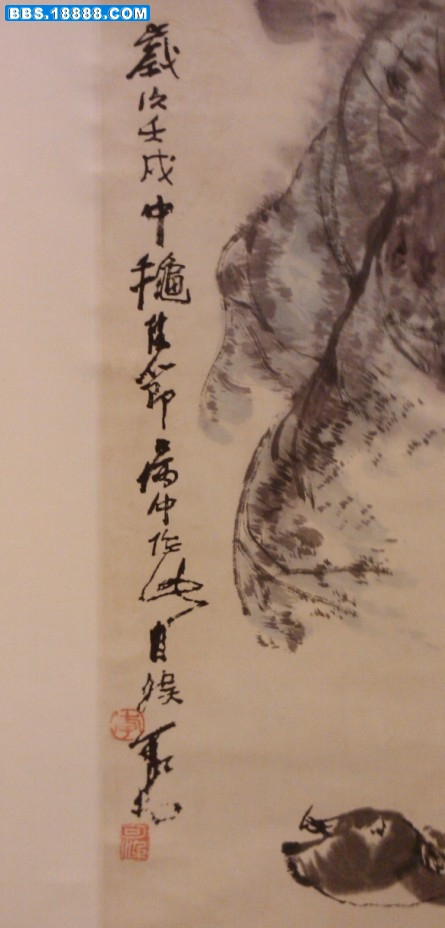 BBS.18888.COM
歲次壬戌中龝佳節病中作此自娛